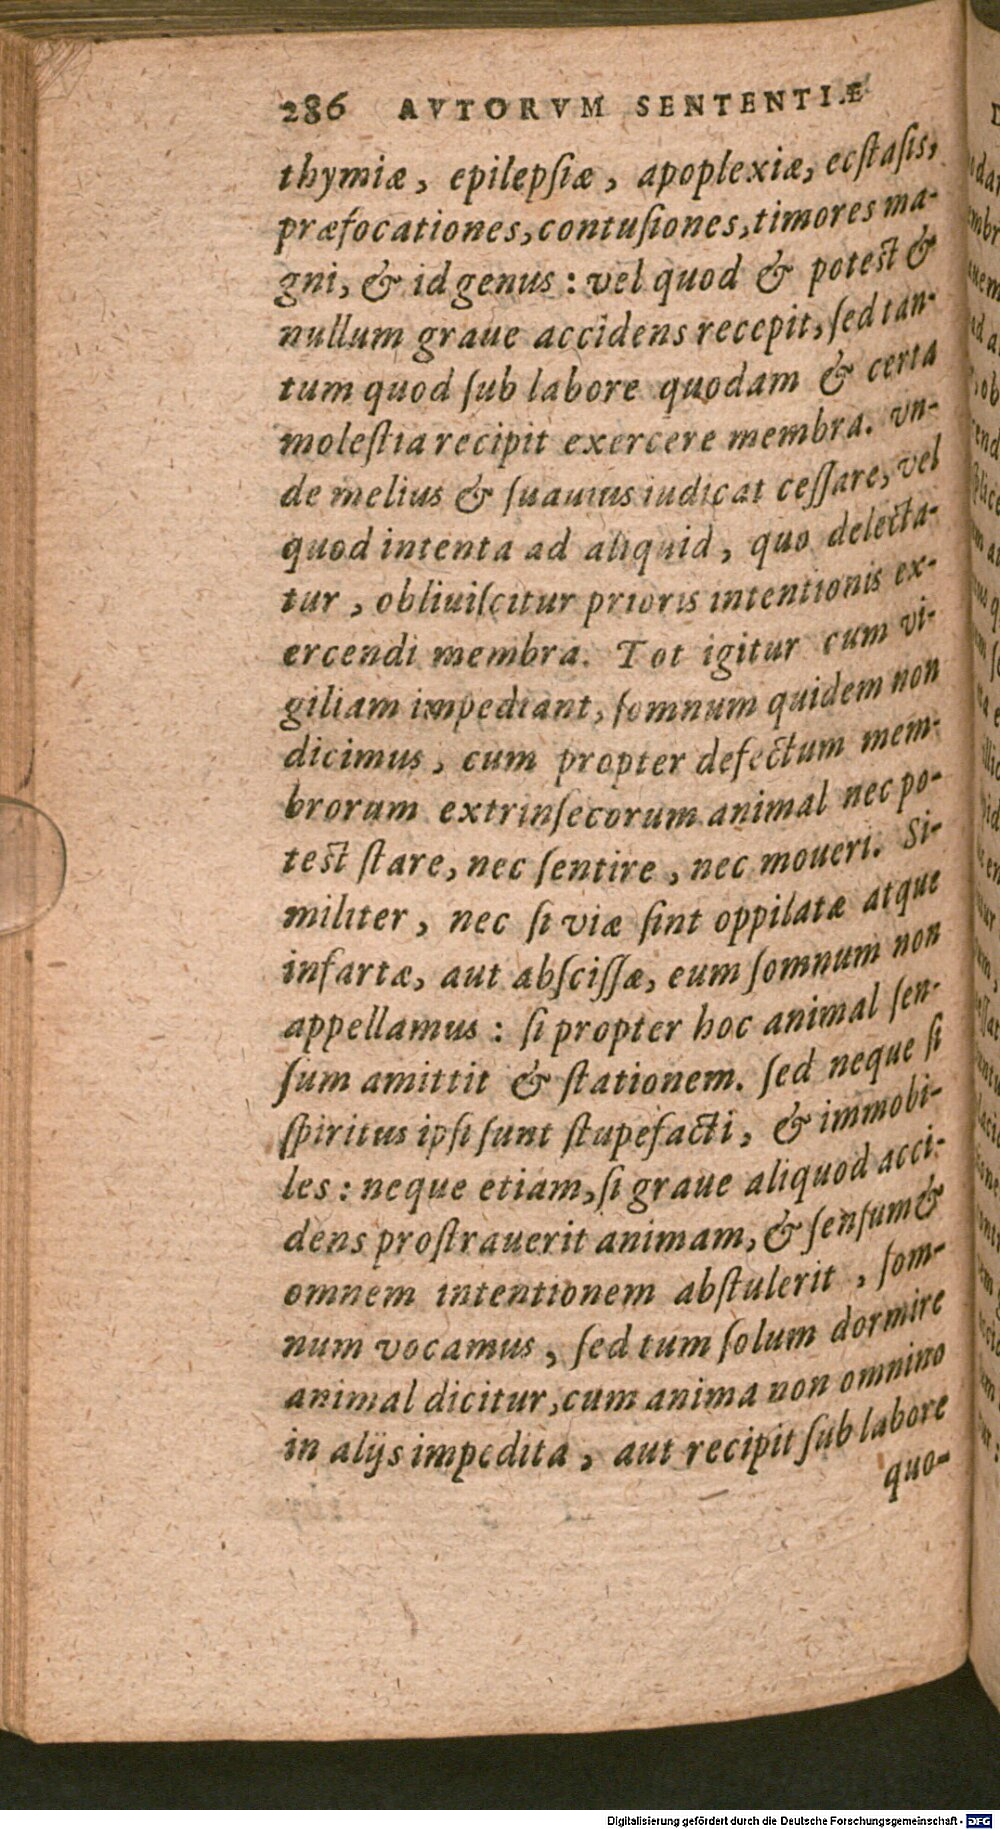 286 AVTORVM SENTENTIÆ
thymiæ, epilepſiæ, apoplexiæ, ecſtaſis,
præfocationes, contuſiones, timores ma-
gni, & id genus: vel quod & poteſt &
nullum graue accidens recepit, ſed tan-
tum quod ſub labore quodam & certa
moleſtia recipit exercere membra. vn-
de melius & ſuauius iudicat ceſſare, vel
quod intenta ad aliquid, quo delecta-
tur, obliuiſcitur prioris intentionis ex-
ercendi membra. Tot igitur cum vi-
giliam impediant, ſomnum quidem non
dicimus, cum propter defectum mem-
brorum extrinſecorum animal nec po-
teſt ſtare, nec ſentire, nec moueri. Si-
militer, nec ſi viæ ſint oppilatæ atque
infartæ, aut abſciſſæ, eum ſomnum non
appellamus: ſi propter hoc animal ſen-
ſum amittit & ſtationem. ſed neque ſi
ſpiritus ipſi ſunt ſtupefacti, & immobi-
les: neque etiam, ſi graue aliquod acci-
dens proſtrauerit animam, & ſenſum &
omnem intentionem abſtulerit, ſom-
num vocamus, ſed tum ſolum dormire
animal dicitur, cum anima non omnino
in alijs impedita, aut recipit ſub labore
quo-
Digitalisierung gefördert durch die Deutsche Forschungsgemeinschaft - DFG